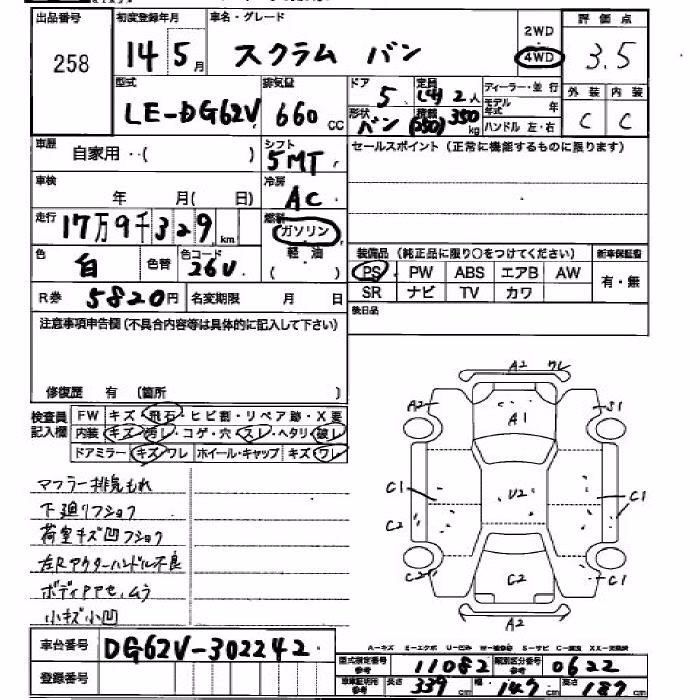 出品番号 初度登録年月 車名・グレード 評価点
258 14年5月 スクラム バン 2WD 4WD 3.5
型式 排気量 ドア 定員 ディーラー・並行 外装 内装
LE-DG62V 660cc 5 2人 モデル年式 年 C C
形状 積載 ハンドル 左・右
バン (250) 350kg
車歴 自家用・( ) シフト 5MT セールスポイント(正常に機能するものに限ります)
車検 年 月( 日) 冷房 AC
走行 17万9千329km 燃料 ガソリン
色 白 色替 色コード 26U 軽・油 ( )
装備品(純正品に限り○をつけてください) 新車保証書
PS PW ABS エアB AW 有・無
SR ナビ TV カワ
R券 5820円 名変期限 月 日
後日品
注意事項申告欄(不具合内容等は具体的に記入して下さい)
修復歴 有(箇所 )
検査員記入欄 FW キズ・飛石・ヒビ割・リペア跡・X要
内装 キズ・汚レ・コゲ・穴・スレ・ヘタリ・破レ
ドアミラー キズ・ワレ ホイール・キャップ キズ・ワレ
マフラー排気もれ
下廻リフショク
荷室キズ凹フショク
左Rアウターハンドル不良
小キズ小凹
A2 ワレ
A2 A1 S1
C1 U2 C1
C2
C2 C2 C1
A2
車台番号 DG62V-302242
登録番号
A-キズ E-エクボ U-凹み W-補修跡 S-サビ C-腐食 XX-交換済
型式指定番号参考 11082 類別区分番号参考 0622
車検証明用参考 長さ 339cm 幅 147cm 高さ 187cm